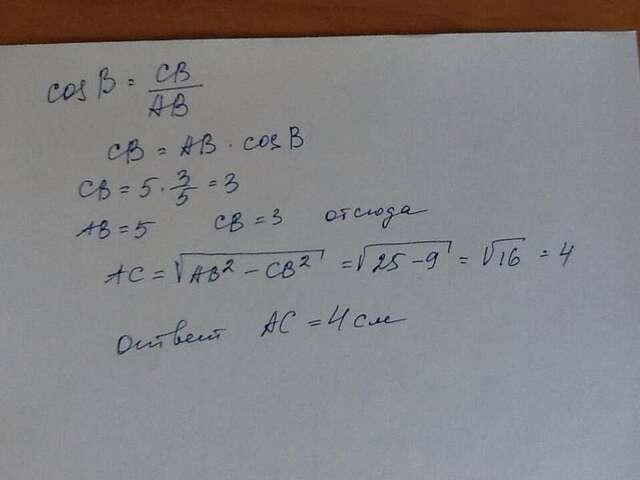 cos B = CB/AB
CB = AB · cos B
CB = 5 · 3/5 = 3
AB = 5 CB = 3 отсюда
AC = √(AB² − CB²) = √(25 − 9) = √16 = 4
Ответ AC = 4 см